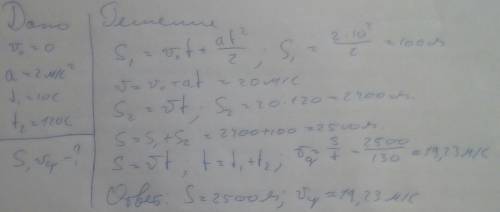 Дано
v₀=0
a=2м/с²
t₁=10с
t₂=120с
S, vср-?
Решение
S₁=v₀t+at²/2; S₁=2·10²/2=100м
v=v₀+at=20м/с
S₂=vt; S₂=20·120=2400м.
S=S₁+S₂=2400+100=2500м.
S=vt, t=t₁+t₂; vср=S/t=2500/130=19,23м/с
Ответ: S=2500м; vср=19,23м/с